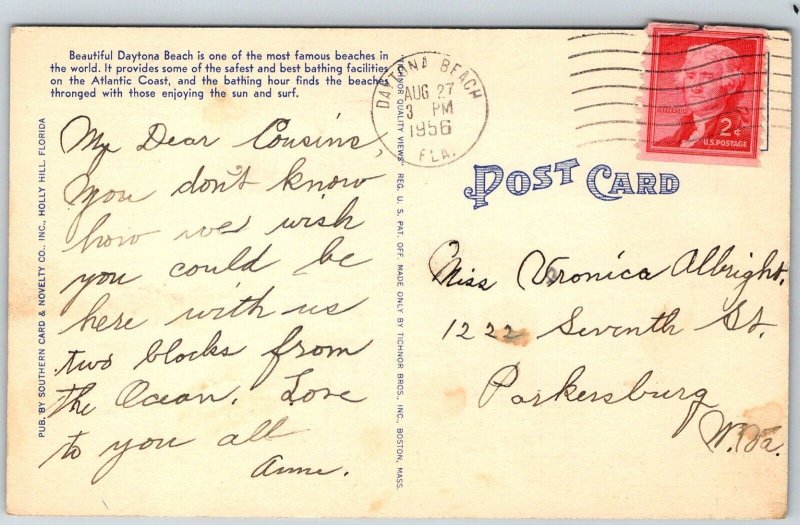 Beautiful Daytona Beach is one of the most famous beaches in
the world. It provides some of the safest and best bathing facilities
on the Atlantic Coast, and the bathing hour finds the beaches
thronged with those enjoying the sun and surf.
My Dear Cousins,
You don't know
how we wish
you could be
here with us
two blocks from
the Ocean. Love
to you all
Anne.
PUB. BY SOUTHERN CARD & NOVELTY CO., INC., HOLLY HILL, FLORIDA
"TICHNOR QUALITY VIEWS" REG. U. S. PAT. OFF. MADE ONLY BY TICHNOR BROS., INC., BOSTON, MASS.
DAYTONA BEACH
AUG 27
3 PM
1956
FLA.
JEFFERSON
2¢
U.S. POSTAGE
POST CARD
Miss Veronica Albright,
1222 Seventh St.
Parkersburg
W. Va.